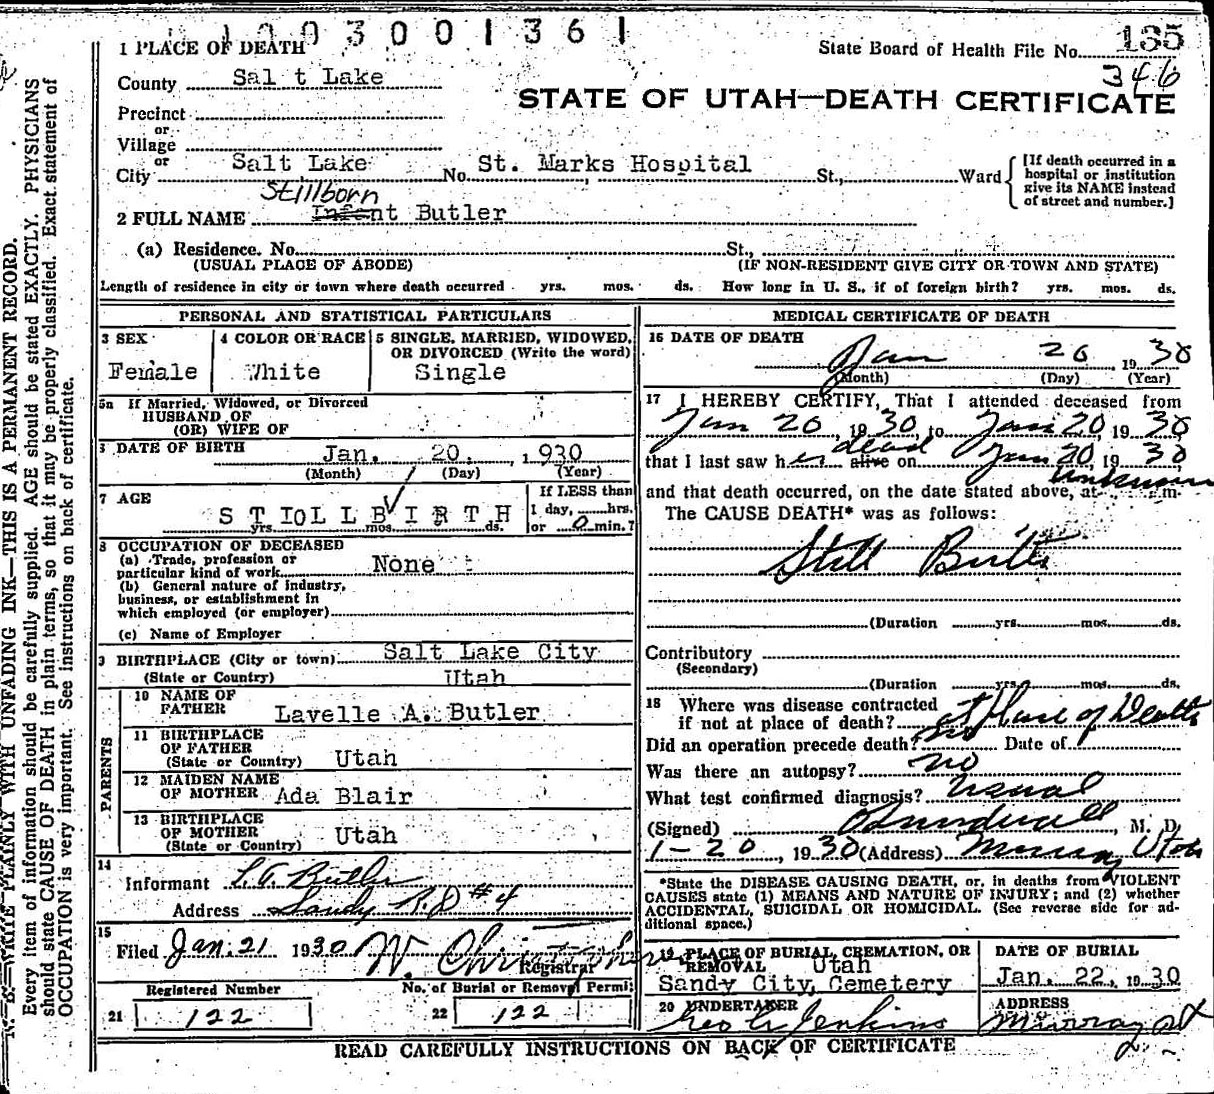 1003001361
1 PLACE OF DEATH
State Board of Health File No. 135
346
County Salt Lake
STATE OF UTAH—DEATH CERTIFICATE
Precinct
or
Village
or
City Salt Lake No. St. Marks Hospital St., Ward
[If death occurred in a hospital or institution give its NAME instead of street and number.]
Stillborn
2 FULL NAME Infant Butler
(a) Residence. No. St.,
(USUAL PLACE OF ABODE) (IF NON-RESIDENT GIVE CITY OR TOWN AND STATE)
Length of residence in city or town where death occurred yrs. mos. ds. How long in U. S., if of foreign birth? yrs. mos. ds.
PERSONAL AND STATISTICAL PARTICULARS
3 SEX
Female
4 COLOR OR RACE
White
5 SINGLE, MARRIED, WIDOWED, OR DIVORCED (Write the word)
Single
5a If Married, Widowed, or Divorced
HUSBAND OF
(OR) WIFE OF
DATE OF BIRTH Jan. 20, 1930
(Month) (Day) (Year)
7 AGE
STIOLLBIRTH
yrs. mos. ds.
If LESS than
1 day, hrs.
or 0 min.?
8 OCCUPATION OF DECEASED
(a) Trade, profession or
particular kind of work None
(b) General nature of industry,
business, or establishment in
which employed (or employer)
(c) Name of Employer
9 BIRTHPLACE (City or town) Salt Lake City
(State or Country) Utah
PARENTS
10 NAME OF FATHER Lavelle A. Butler
11 BIRTHPLACE OF FATHER
(State or Country) Utah
12 MAIDEN NAME OF MOTHER Ada Blair
13 BIRTHPLACE OF MOTHER
(State or Country) Utah
14
Informant L. A. Butler
Address Sandy R.D #4
15
Filed Jan. 21 1930 W. Christopherson
Registrar
Registered Number
21 122
No. of Burial or Removal Permit
22 122
MEDICAL CERTIFICATE OF DEATH
16 DATE OF DEATH
Jan 20 1930
(Month) (Day) (Year)
17 I HEREBY CERTIFY, That I attended deceased from
Jan 20, 1930 to Jan 20, 1930,
that I last saw her alive dead on Jan 20, 1930,
and that death occurred, on the date stated above, at unknown m.
The CAUSE DEATH* was as follows:
Still Birth
(Duration yrs. mos. ds.
Contributory
(Secondary)
(Duration yrs. mos. ds.
18 Where was disease contracted
if not at place of death? at place of Death
Did an operation precede death? no Date of
Was there an autopsy? no
What test confirmed diagnosis? usual
(Signed) Sundwall, M. D.
1-20, 1930 (Address) Murray Utah
*State the DISEASE CAUSING DEATH, or, in deaths from VIOLENT
CAUSES state (1) MEANS AND NATURE OF INJURY; and (2) whether
ACCIDENTAL, SUICIDAL OR HOMICIDAL. (See reverse side for additional space.)
19 PLACE OF BURIAL, CREMATION, OR
REMOVAL Utah
Sandy City, Cemetery
DATE OF BURIAL
Jan. 22, 1930
20 UNDERTAKER
Jenkins
ADDRESS
Murray Ut
READ CAREFULLY INSTRUCTIONS ON BACK OF CERTIFICATE
N. B.—WRITE PLAINLY WITH UNFADING INK—THIS IS A PERMANENT RECORD.
Every item of information should be carefully supplied. AGE should be stated EXACTLY. PHYSICIANS
should state CAUSE OF DEATH in plain terms, so that it may be properly classified. Exact statement of
OCCUPATION is very important. See instructions on back of certificate.